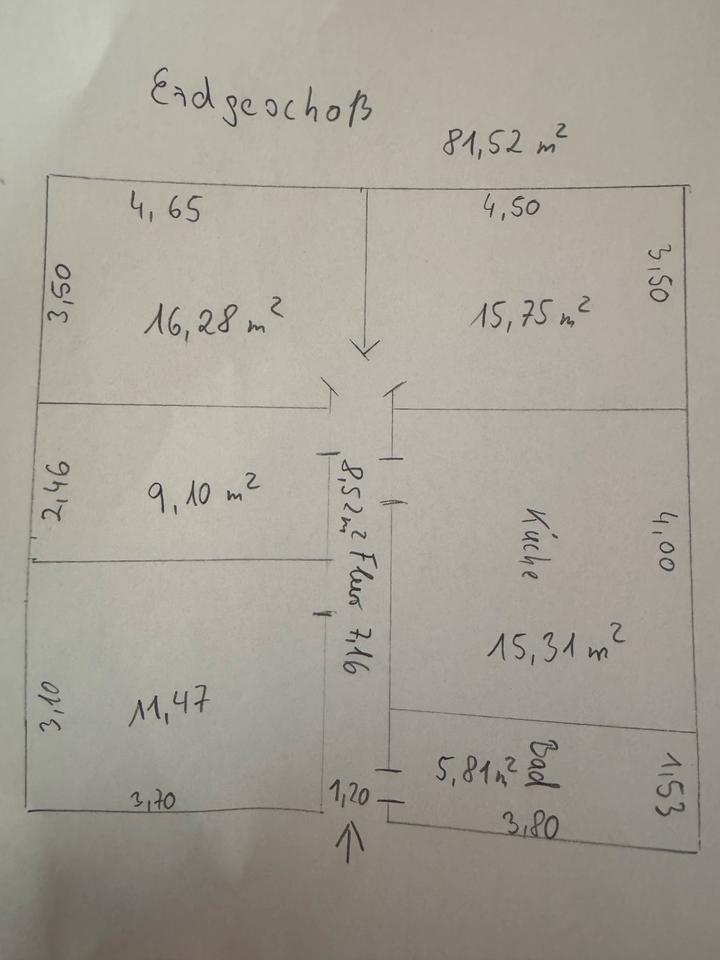 Erdgeschoß
81,52 m²
4,65
4,50
3,50
16,28 m²
15,75 m²
3,50
2,46
9,10 m²
8,52 m² Flur 7,16
Küche
4,00
15,31 m²
3,10
11,47
3,70
1,20
5,81 m²
Bad
1,53
3,80